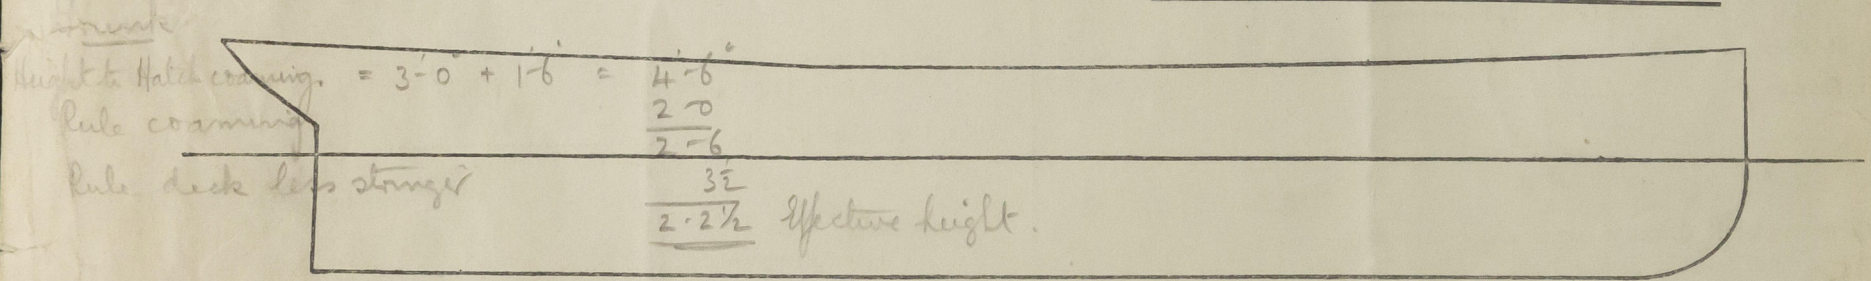 Trunk
Height to Hatch coaming. = 3'-0" + 1'-6" = 4'-6"
Rule coaming 2-0
2-6
Rule deck less stringer 3½
2-2½ Effective height.